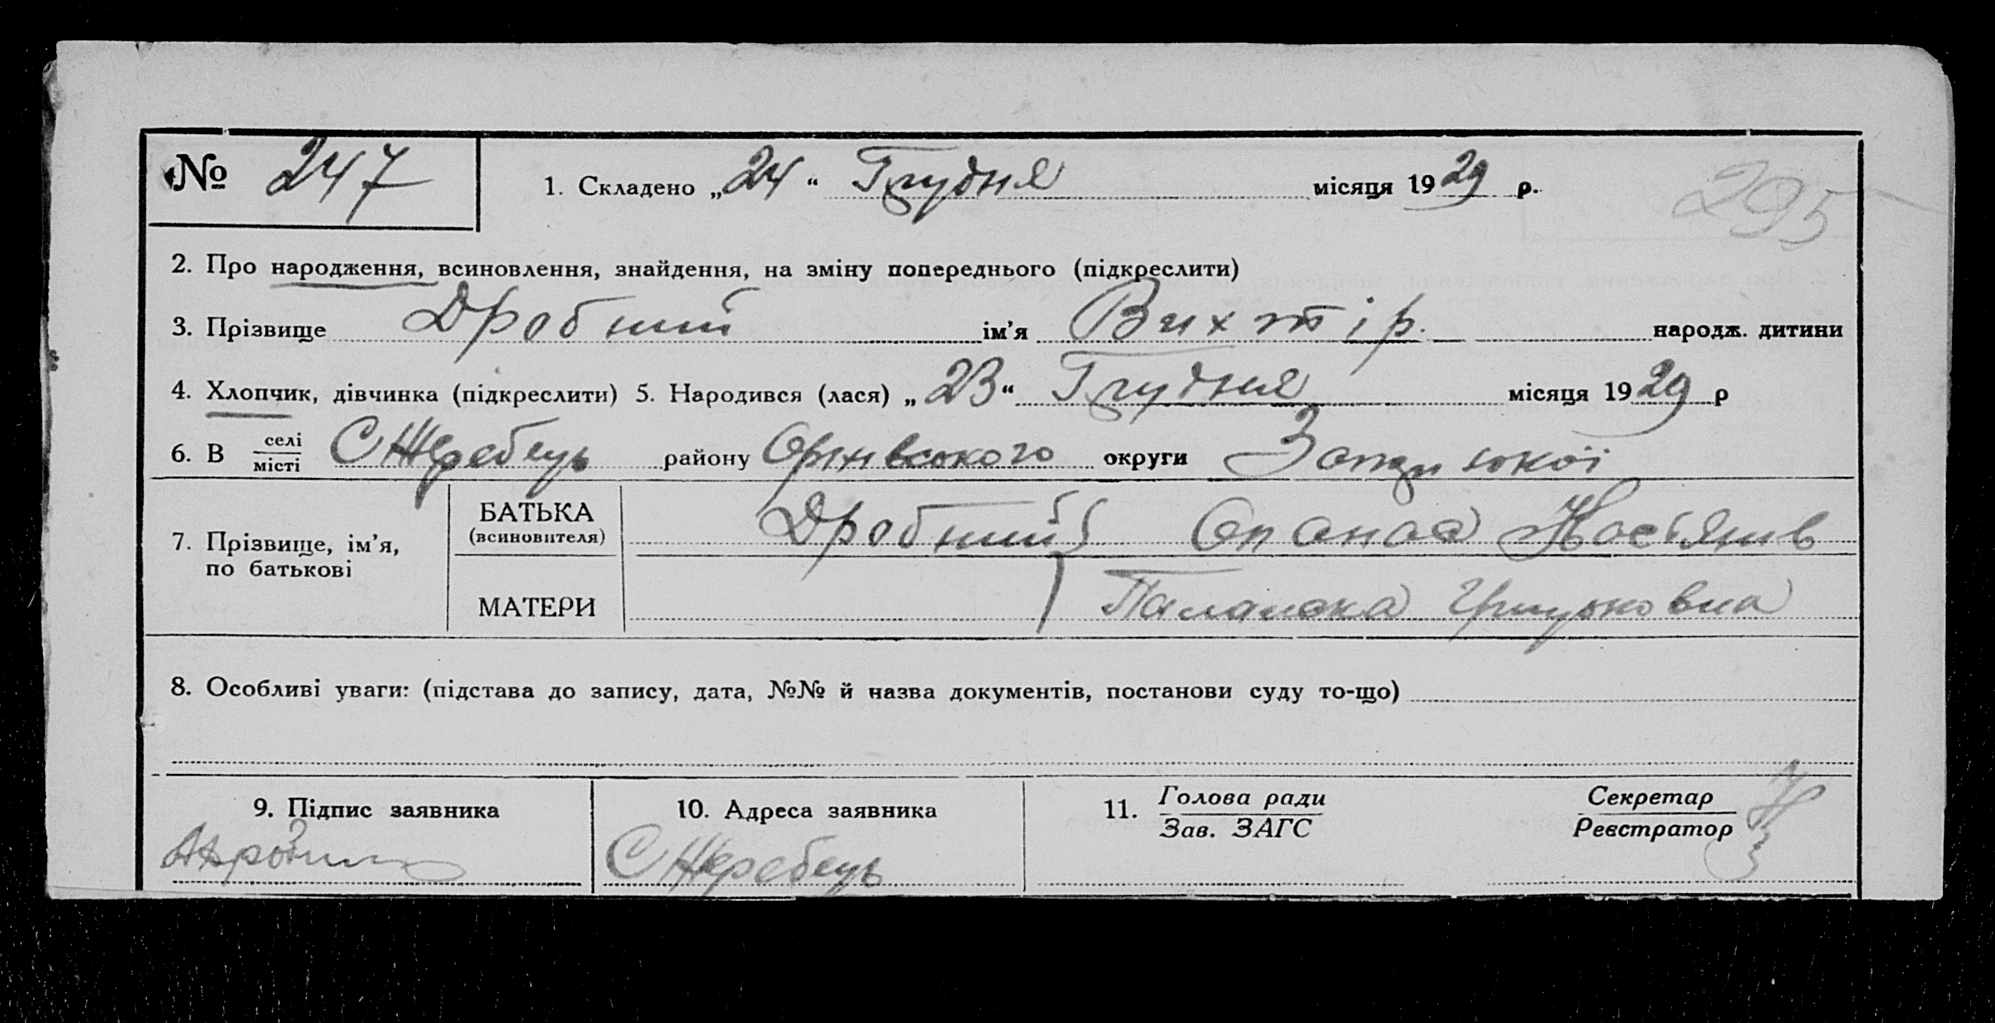 № 247 1. Складено „24“ Грудня місяця 1929 р. 295
2. Про народження, всиновлення, знайдення, на зміну попереднього (підкреслити)
3. Прізвище Дробний ім’я Вихтір. народж. дитини
4. Хлопчик, дівчинка (підкреслити) 5. Народився (лася) „23“ Грудня місяця 1929 р
6. В селі місті С Жеребець району Оріхівського округи Запорізької
7. Прізвище, ім’я, по батькові
БАТЬКА (всиновителя) Дробний Опанас
МАТЕРИ Палажка
8. Особливі уваги: (підстава до запису, дата, №№ й назва документів, постанови суду то-що)
9. Підпис заявника 10. Адреса заявника 11. Голова ради Секретар
Зав. ЗАГС Реєстратор
С Жеребець